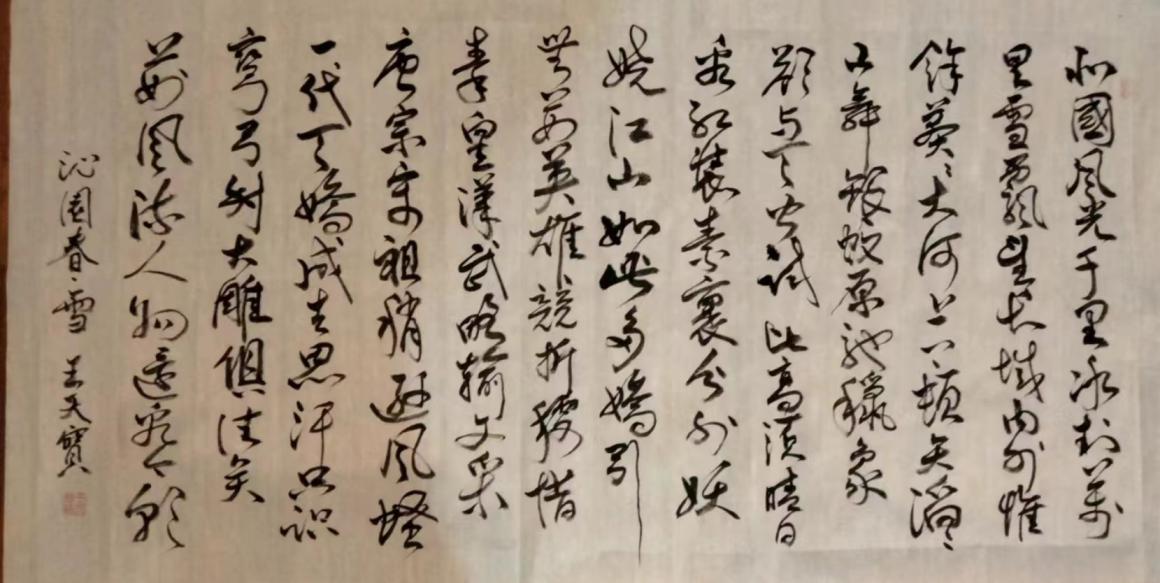 北國風光千里冰封萬
里雪飄望長城內外惟
餘莽〻大河上下頓失滔〻
山舞銀蛇原馳蠟象
欲与天公試比高須晴日
看紅裝素裹分外妖
嬈江山如此多嬌引
無數英雄競折腰惜
秦皇漢武略輸文采
唐宗宋祖稍遜風騷
一代天嬌成吉思汗只識
彎弓射大雕俱往矣
數風流人物還看今朝
沁園春·雪 王天寶